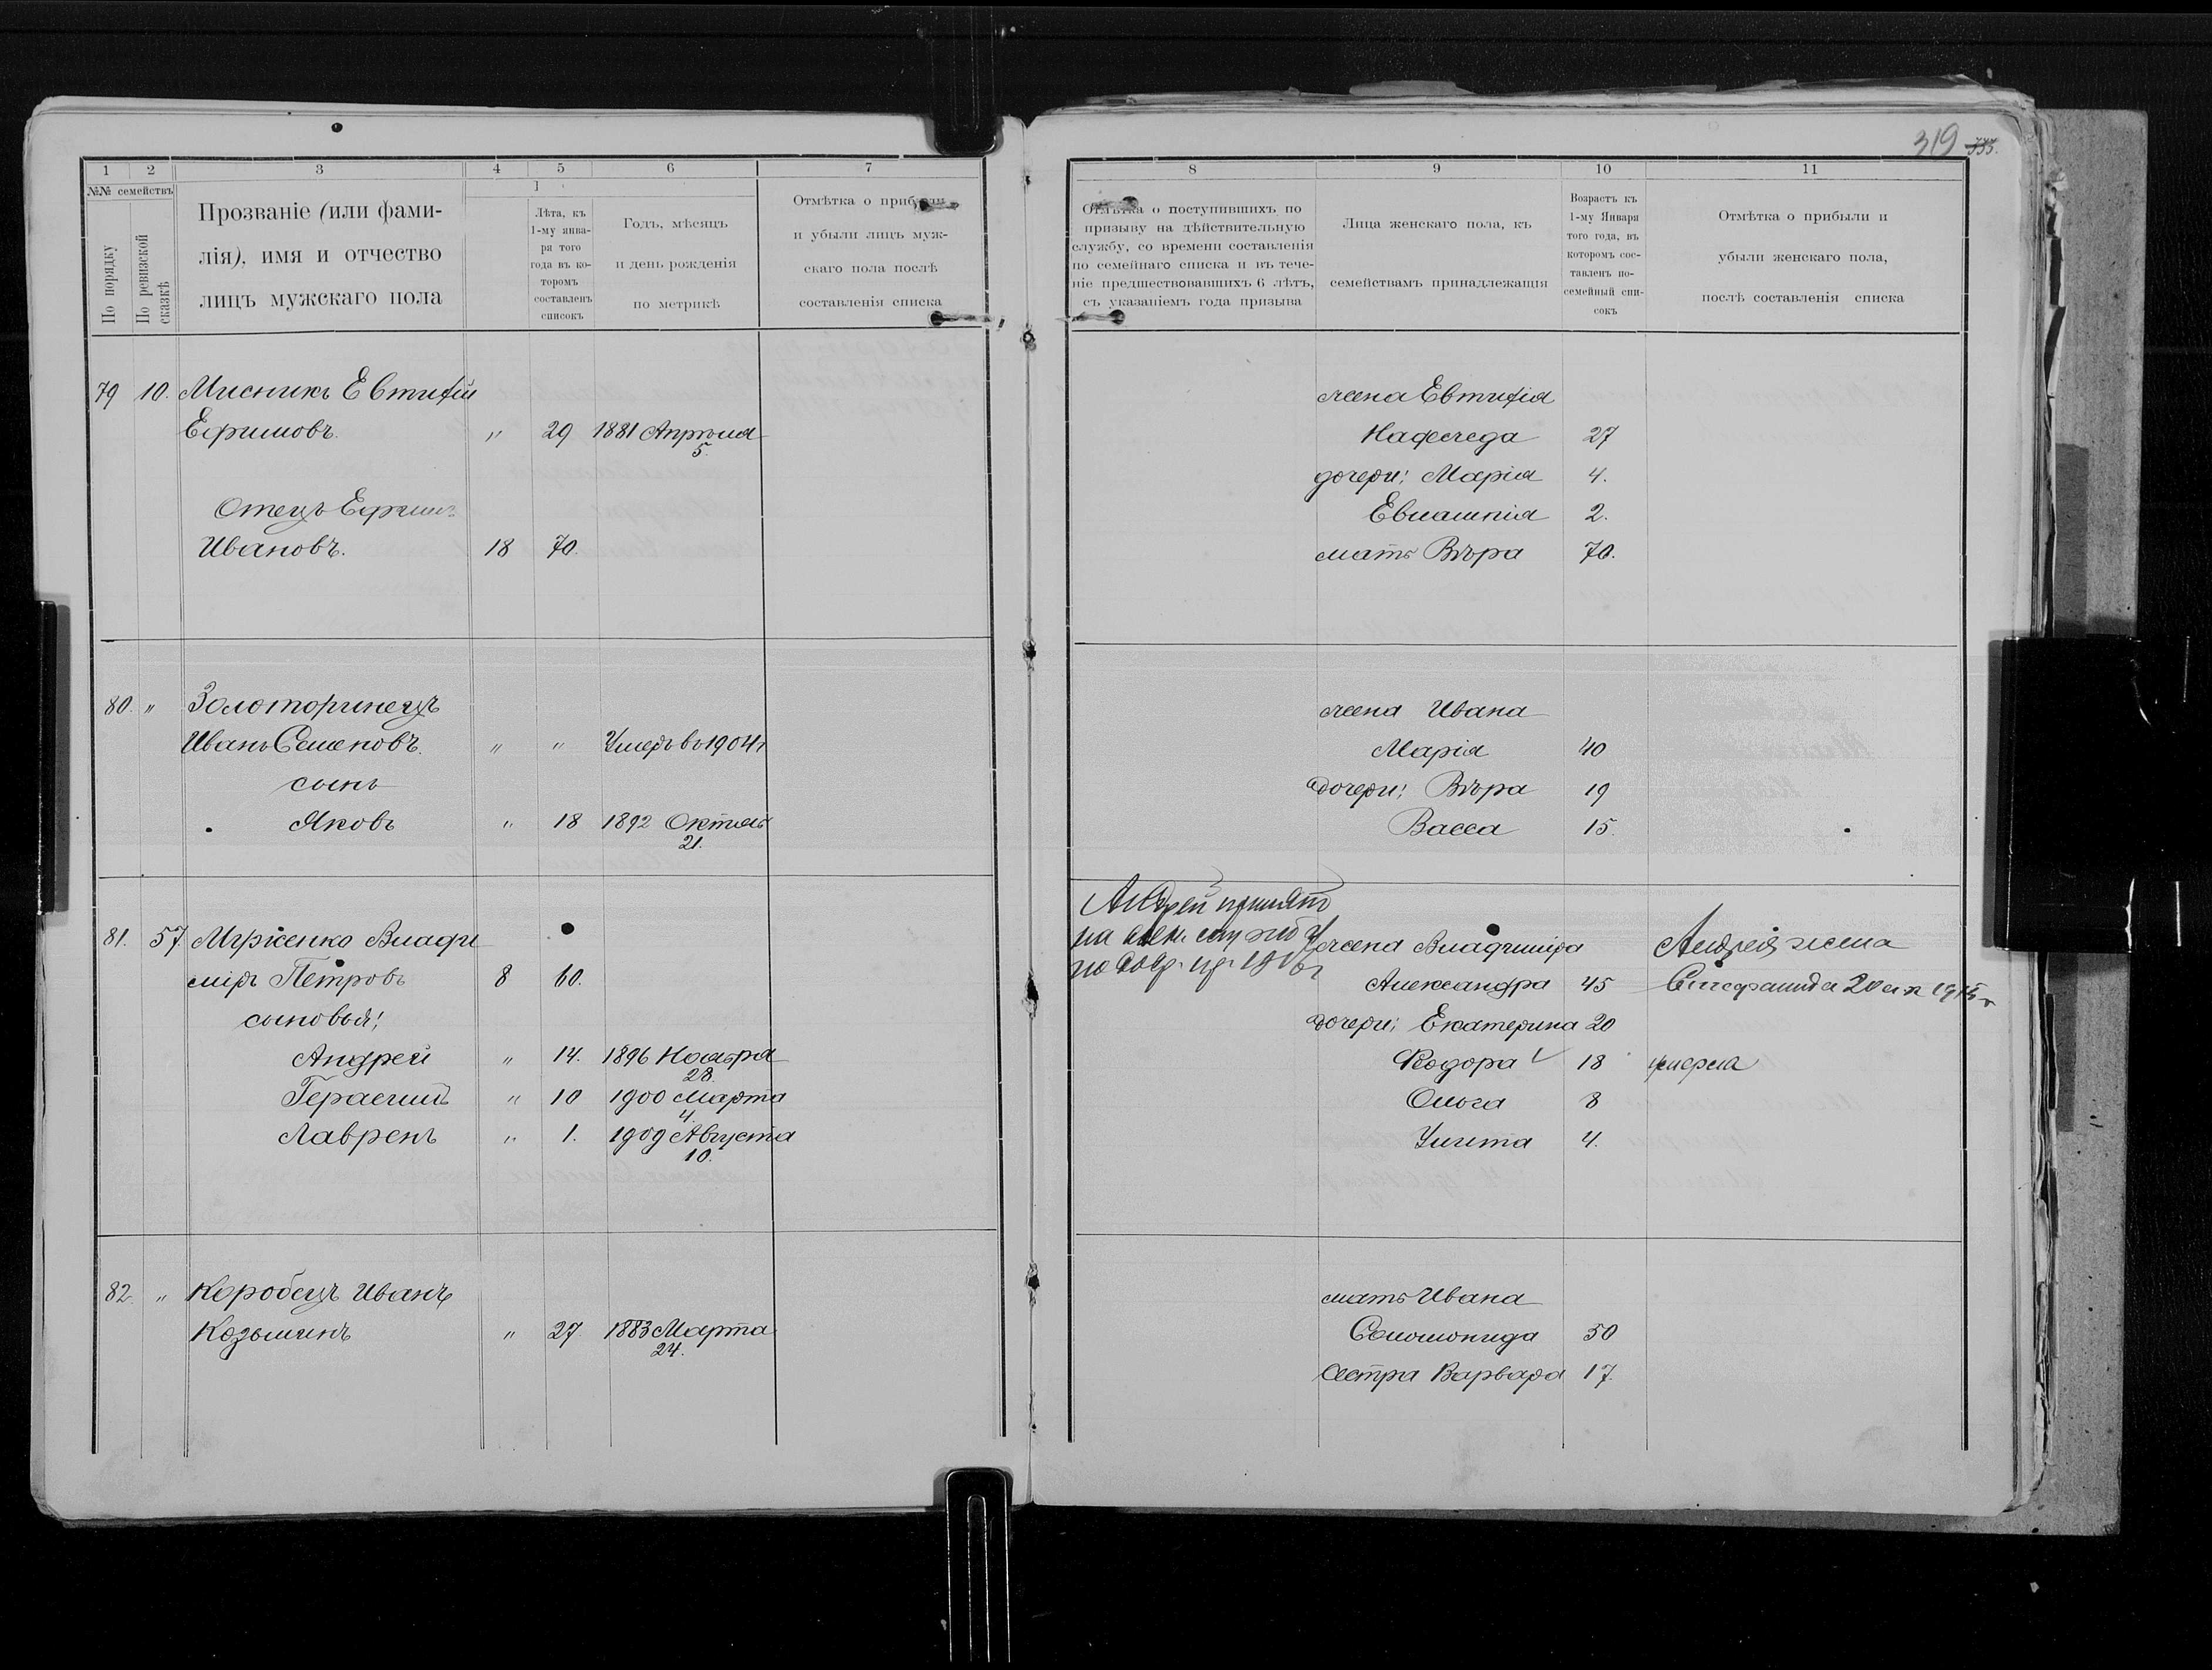 1 2 3 4 5 6 7
№№ семействъ
По порядку
По ревизской сказкѣ
Прозваніе (или фами-
лія), имя и отчество
лицъ мужскаго пола
1
Лѣта, къ
1-му янва-
ря того
года въ ко-
торомъ
составленъ
списокъ
Годъ, мѣсяцъ
и день рожденія
по метрикѣ
Отмѣтка о прибыли
и убыли лицъ муж-
скаго пола послѣ
составленія списка
79 10. Мисникъ Евтифій
Ефимовъ. " 29 1881 Апрѣля
5.
Отецъ Ефимъ
Ивановъ. 18 70.
80. " Золоторинецъ
Иванъ Семеновъ. " " Умеръ въ 1904 г
сынъ
Яковъ " 18 1892 Октяб
21.
81. 57 Мурженко Влади
міръ Петровъ 8 60.
сыновья:
Андрей " 14. 1896 Ноября
28.
Герасимъ " 10 1900 Марта
4.
Лаврень " 1. 1909 Августа
10.
82. " Коробецъ Иванъ
Козьминъ " 27. 1883 Марта
24.
319 333.
8 9 10 11
Отмѣтка о поступившихъ по
призыву на дѣйствительную
службу, со времени составленія
по семейнаго списка и въ тече-
ніе предшествовавшихъ 6 лѣтъ,
съ указаніемъ года призыва
Лица женскаго пола, къ
семействамъ принадлежащія
Возрастъ къ
1-му Января
того года, въ
которомъ сос-
тавленъ по-
семейный спи-
сокъ
Отмѣтка о прибыли и
убыли женскаго пола,
послѣ составленія списка
жена Евтифія
Надежда 27
дочери: Марія 4.
Евлампія 2.
мать Вѣра 70.
жена Ивана
Марія 40
дочери: Вѣра 19
Васса 15.
Андрей принятъ
на воен. службу
по
жена Владиміра Андрея жена
Александра 45 Стефанида 20
дочери: Екатерина 20
Ѳодора 18 умерла
Ольга 8
Улита 4.
мать Ивана
Соломонида 50
Сестра Варвара 17.